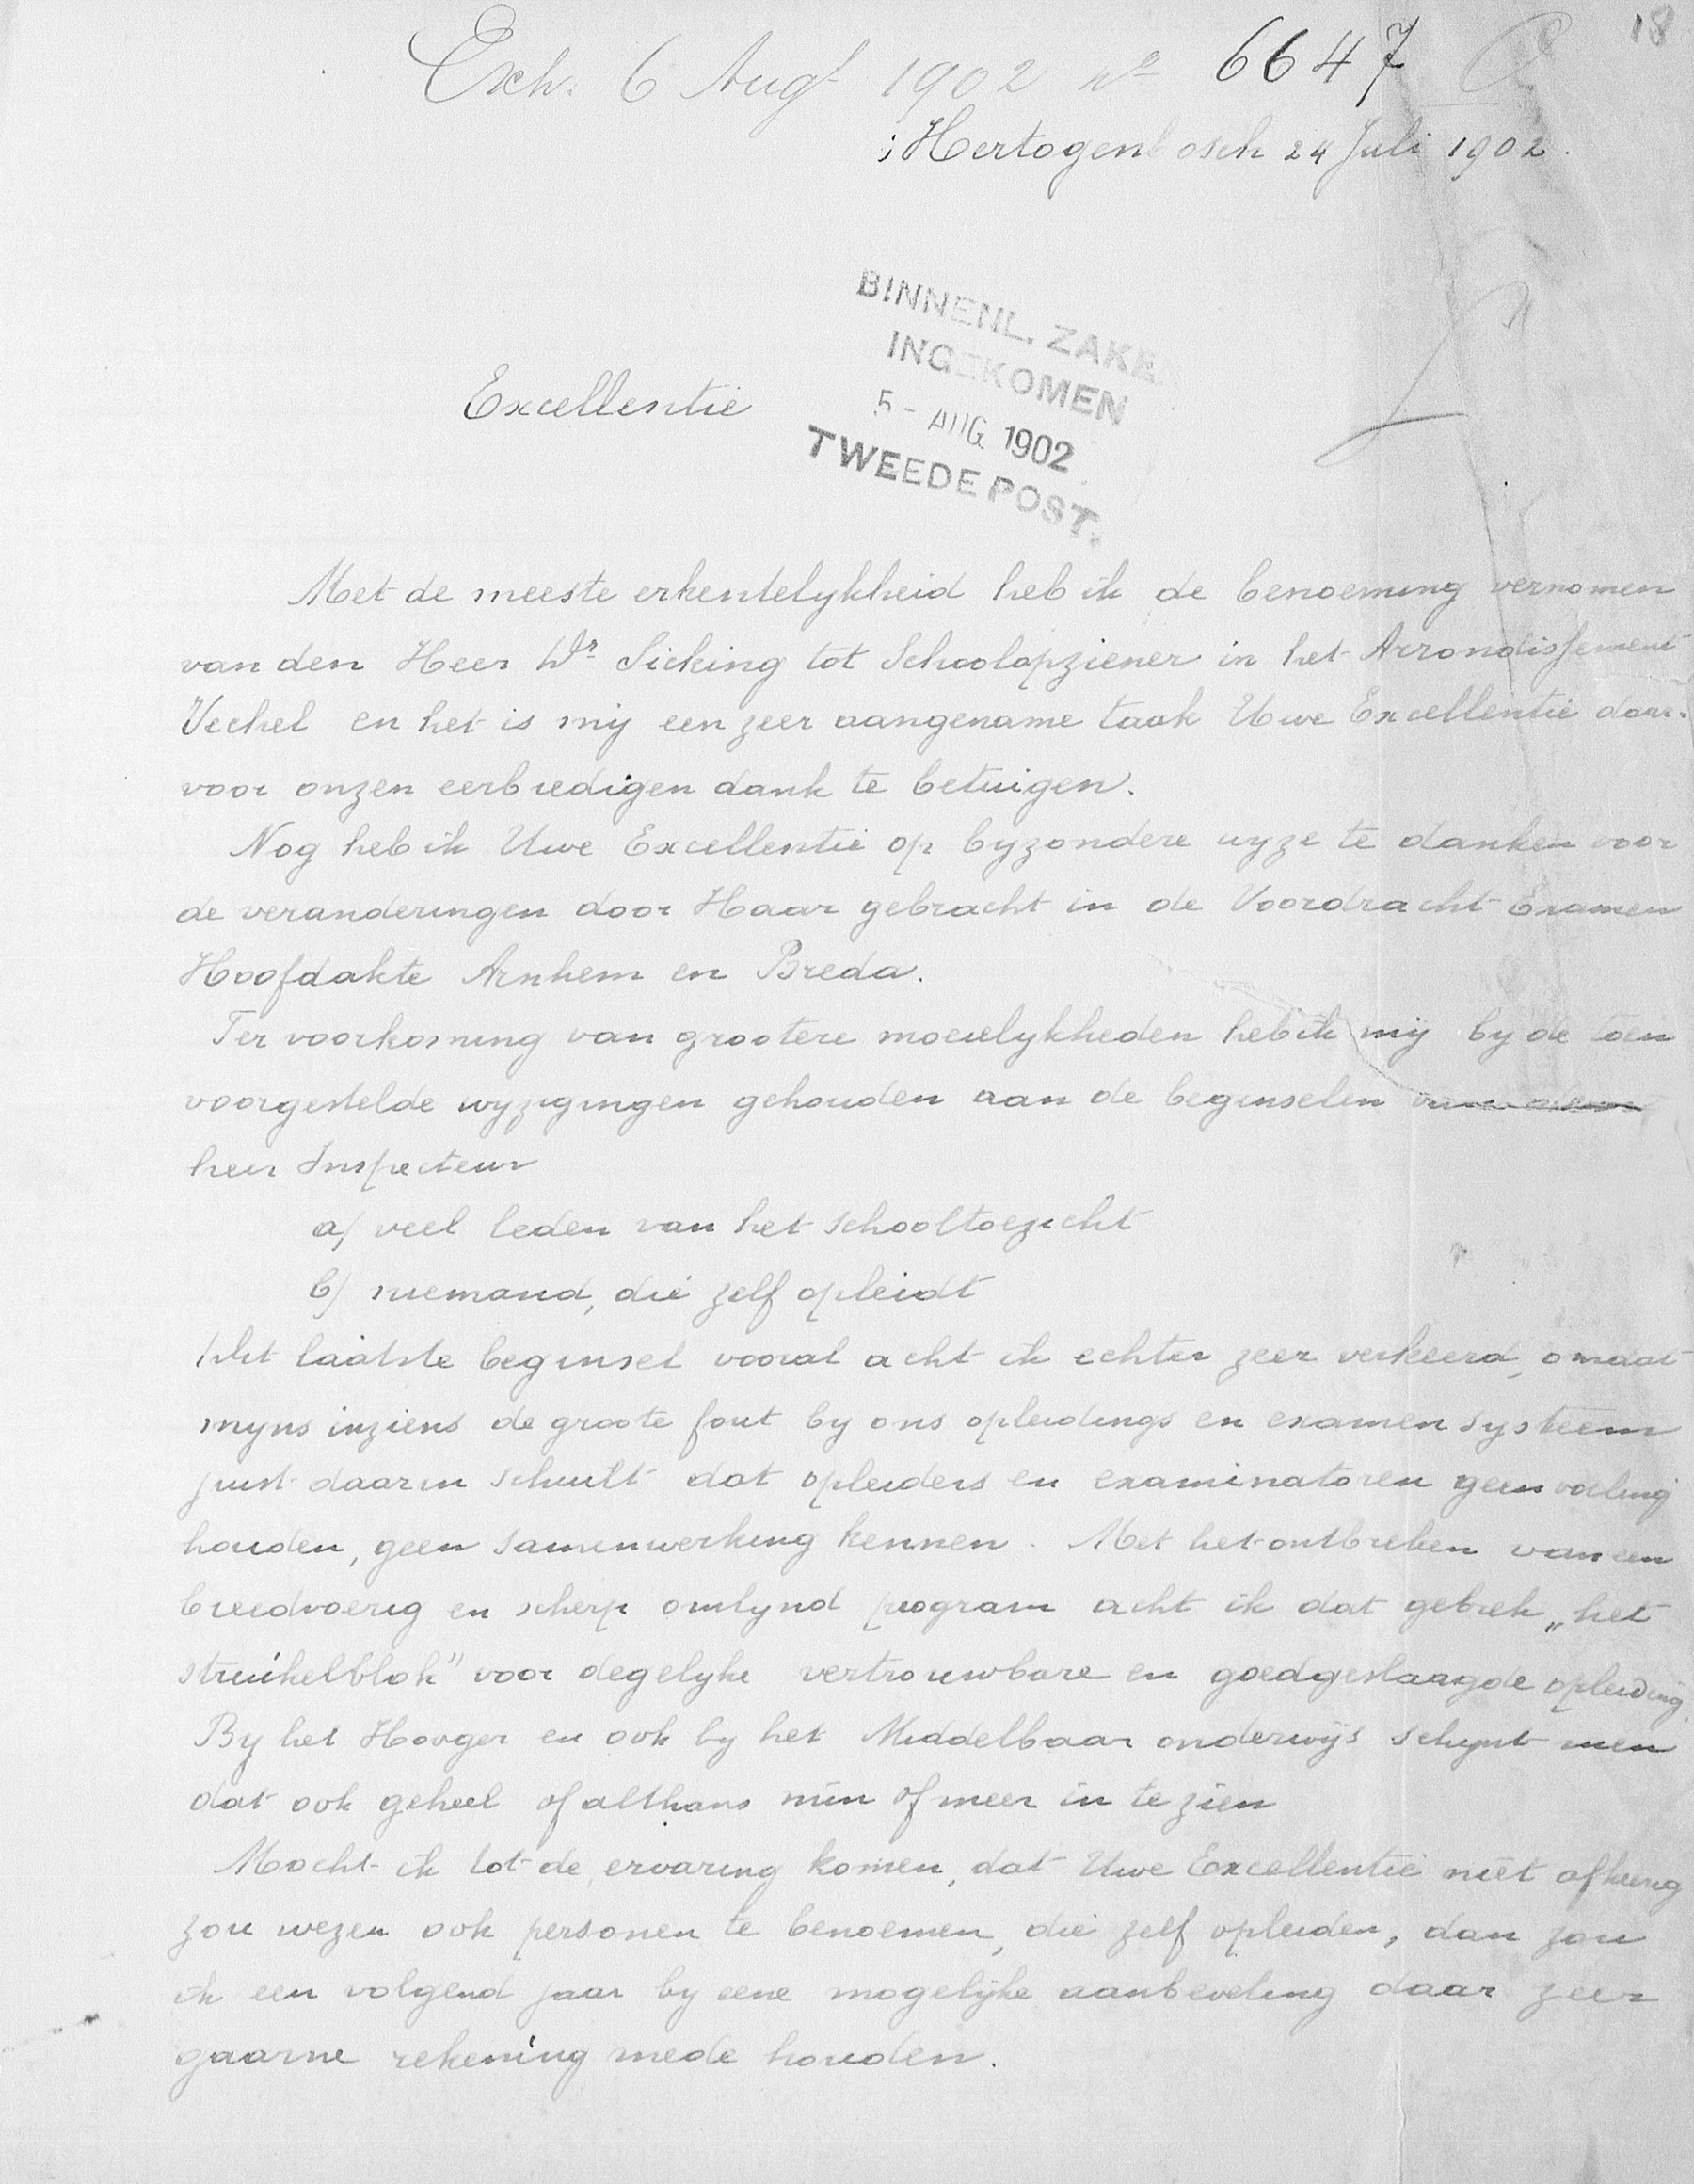 18
Exh. 6 Augt 1902 no 6647
's Hertogenbosch 24 Juli 1902.
BINNENL. ZAKE
INGEKOMEN
5 - AUG. 1902
TWEEDE POST.
Excellentie
Met de meeste erkentelykheid heb ik de benoeming vernomen
van den Heer Dr Sicking tot Schoolopziener in het Arrondissement
Vechel en het is mij een zeer aangename taak Uwe Excellentie daar-
voor onzen eerbiedigen dank te betuigen.
Nog heb ik Uwe Excellentie op byzondere wyze te danken voor
de veranderingen door Haar gebracht in de Voordracht Examen
Hoofdakte Arnhem en Breda.
Ter voorkoming van grootere moeielykheden heb ik mij by de toen
voorgestelde wyzigingen gehouden aan de beginselen
heer Inspecteur
a) veel leden van het schooltoezicht
b) niemand, die zelf opleidt
Het laatste beginsel vooral acht ik echter zeer verkeerd, omdat
myns inziens de groote fout by ons opleidings en examen systeem
juist daarin schuilt dat opleiders en examinatoren geen voeling
houden, geen samenwerking kennen. Met het ontbreken van een
breedvoerig en scherp omlynd program acht ik dat gebrek „het
struikelblok" voor degelyke vertrouwbare en goedgeslaagde opleiding.
By het Hooger en ook by het Middelbaar onderwijs schynt men
dat ook geheel of althans min of meer in te zien
Mocht ik tot de ervaring komen, dat Uwe Excellentie niet afkeerig
zou wezen ook personen te benoemen, die zelf opleiden, dan zou
ik een volgend jaar by eene mogelijke aanbeveling daar zeer
gaarne rekening mede houden.